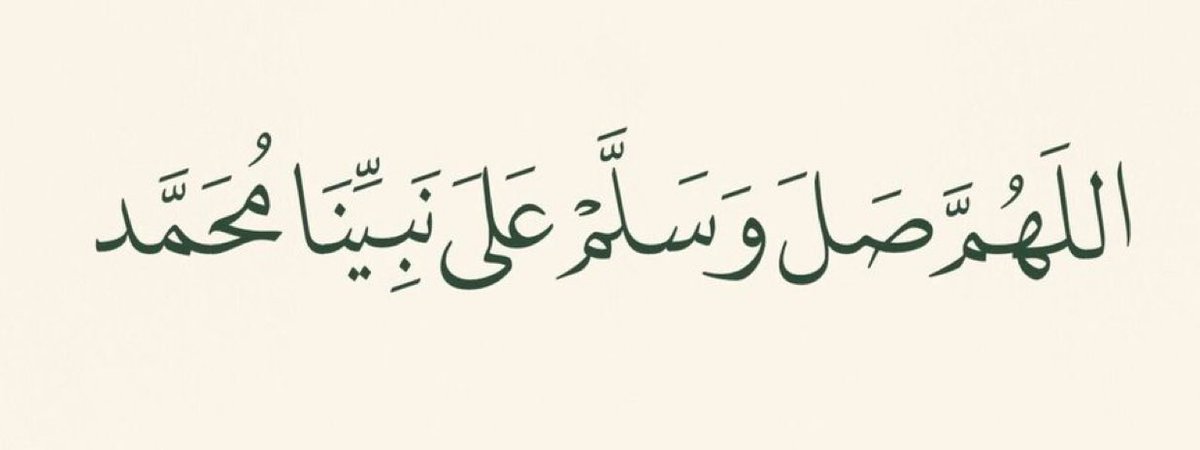 اللَهُمَّ صَلَ وَسَلَّمْ عَلَىَ نَبِيِّنَا مُحَمَّد